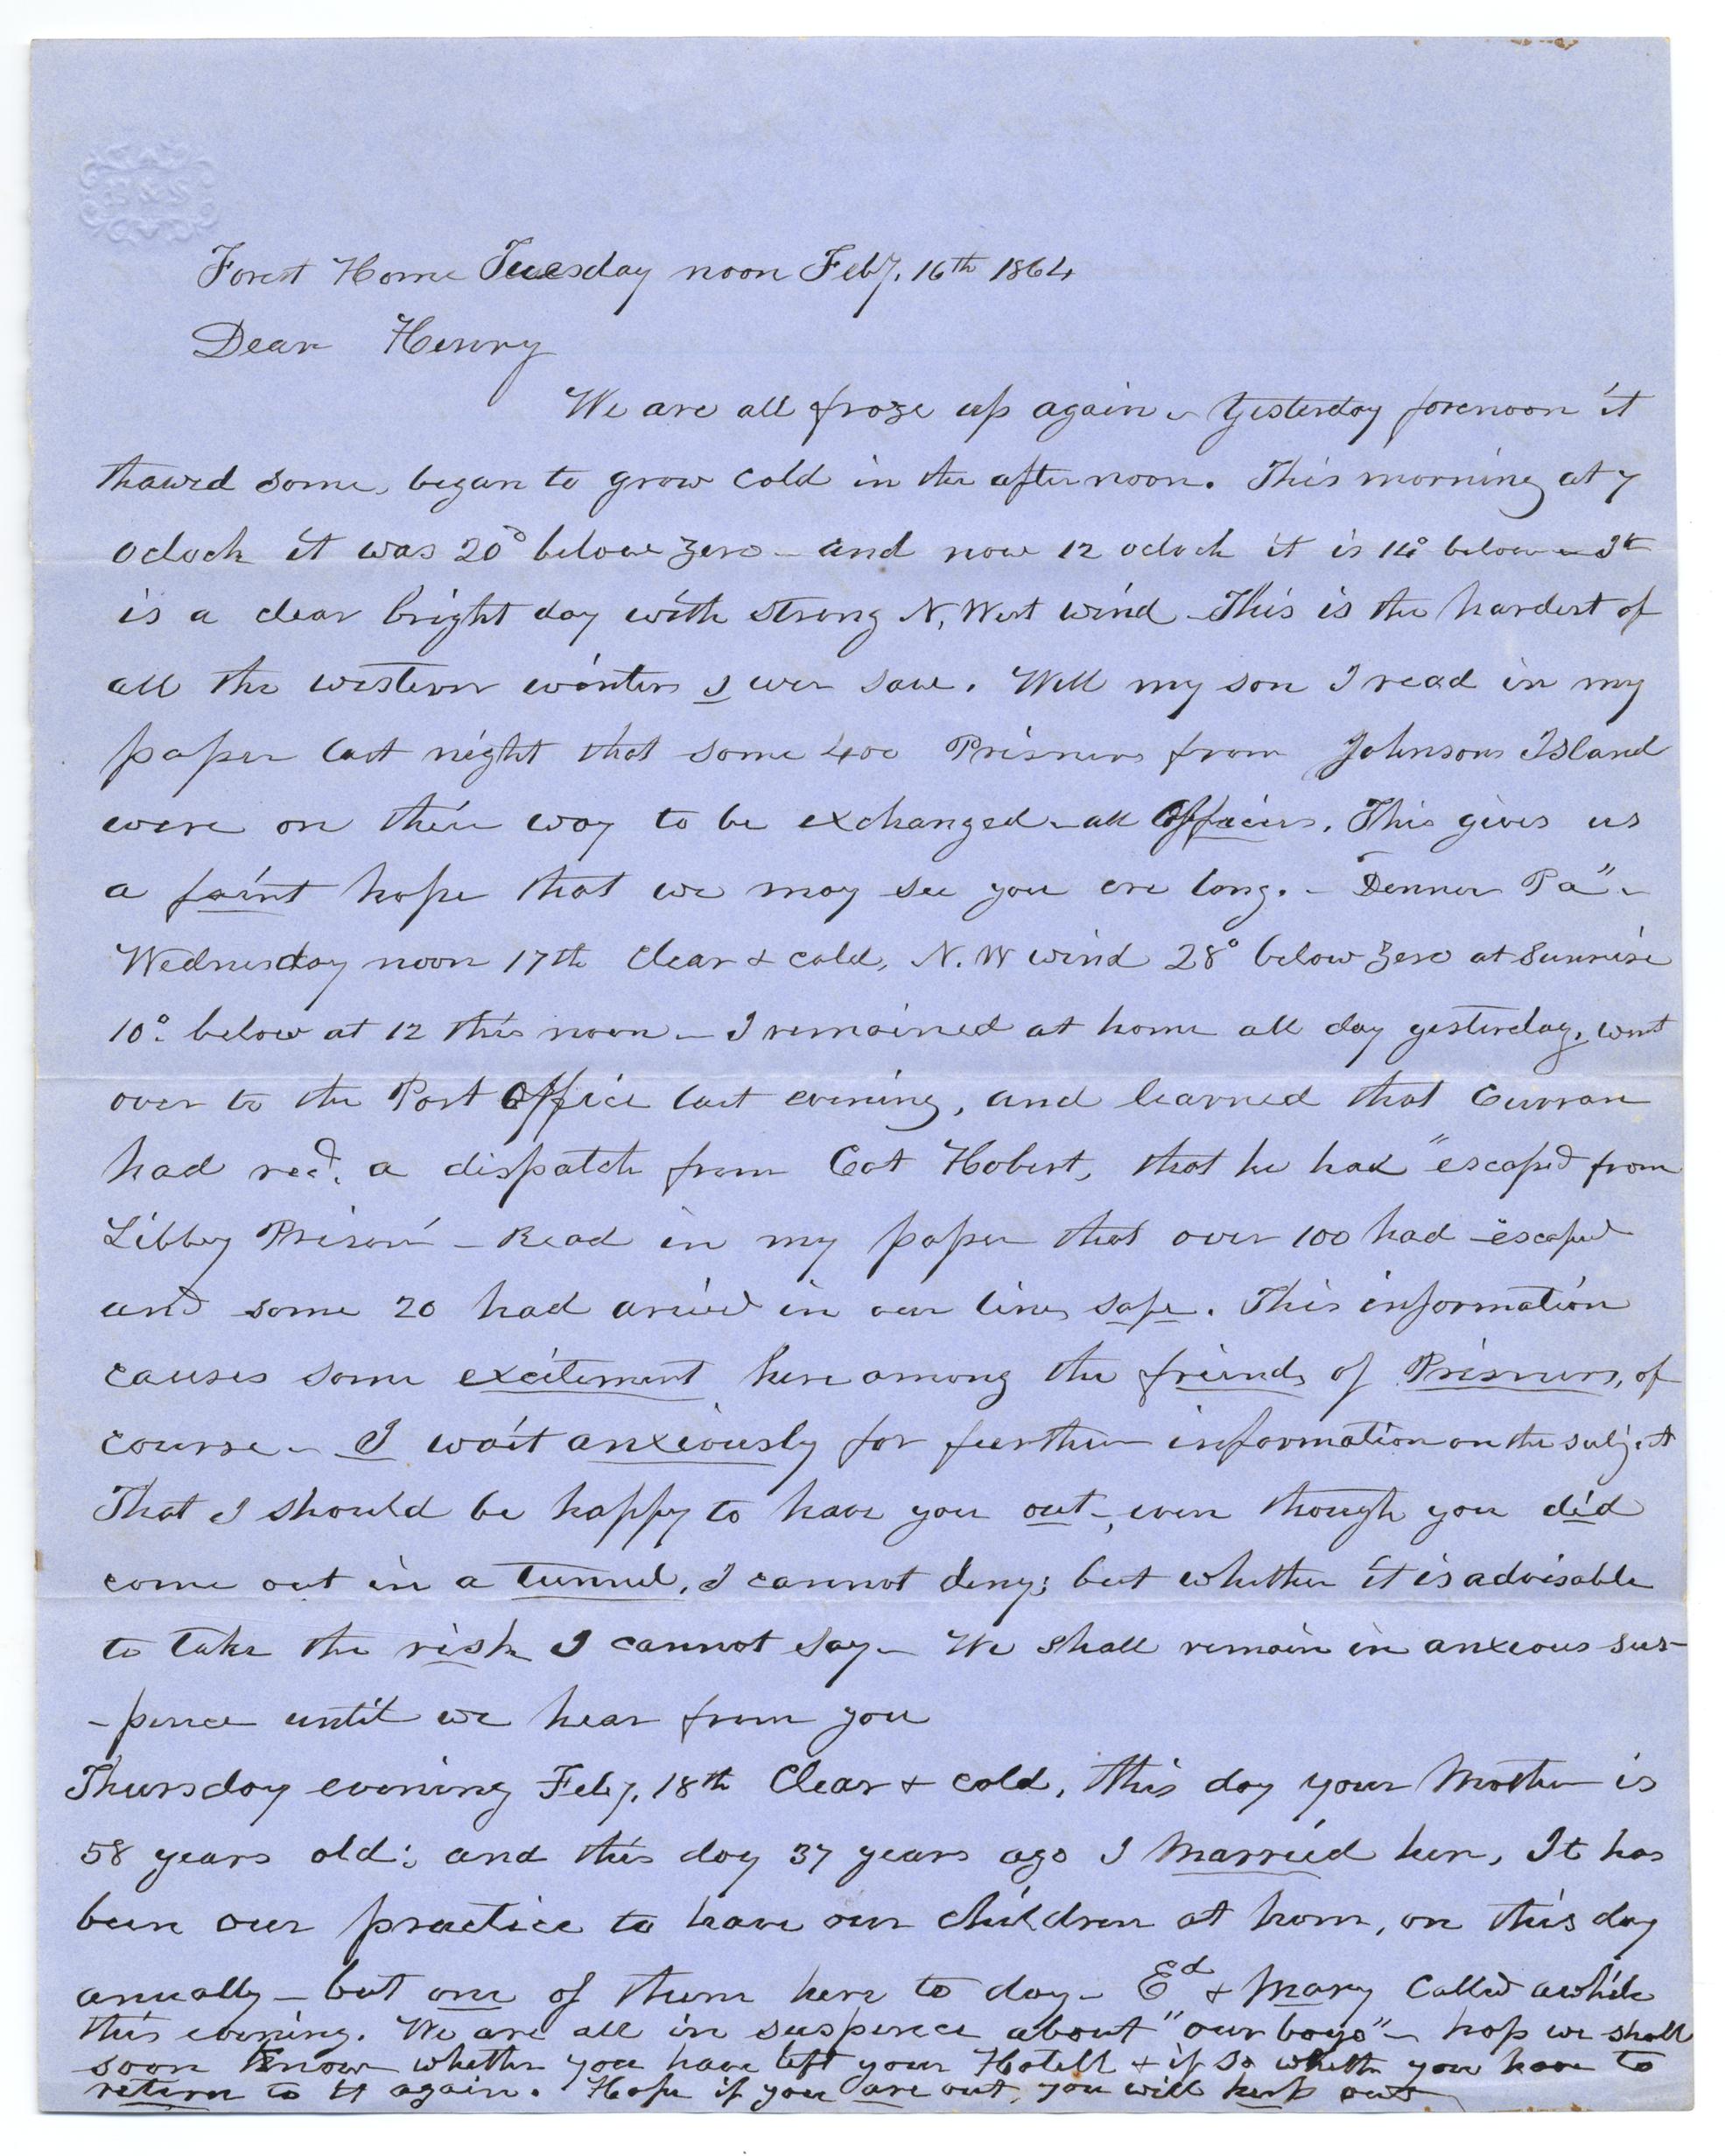 P & S
Forest Home Tuesday noon Feby. 16th 1864
Dear Henry
We are all froze up again - Yesterday forenoon it
thawed some, began to grow cold in the afternoon. This morning at 7
oclock it was 20° below zero - and now 12 oclock it is 14° below - It
is a clear bright day with strong N, West wind - This is the hardest of
all the western winters I ever saw. Well my son I read in my
paper last night that some 400 Prisners from Johnsons Island
were on their way to be exchanged - all Officers. This gives us
a faint hope that we may see you ere long. - Denner Pa" -
Wednesday noon 17th Clear & cold, N. W wind 28° below zero at Sunrise
10° below at 12 this noon - I remained at home all day yesterday, went
over to the Post Office last evening, and learned that Curran
had recd. a dispatch from Cot Hobert, that he had "escaped from
Libby Prison" - Read in my paper that over 100 had escaped
and some 20 had arived in our lines safe. This information
causes some excitement here among the friends of Prisners, of
course - I wait anxiously for further information on the subject
That I should be happy to have you out -, even though you did
come out in a tunnel, I cannot deny; but whether it is advisable
to take the risk I cannot say - We shall remain in anxious sus-
-pence until we hear from you
Thursday evening Feby. 18th Clear & cold, this day your Mother is
58 years old; and this day 37 years ago I Married her, It has
been our practice to have our children at home, on this day
anually - but one of them here to day - Ed & Mary Called awhile
this evening. We are all in suspence about "our boys" - hop we shall
soon know whether you have left your Hotell & if so whether you have to
return to it again. Hope if you are out, you will keep out